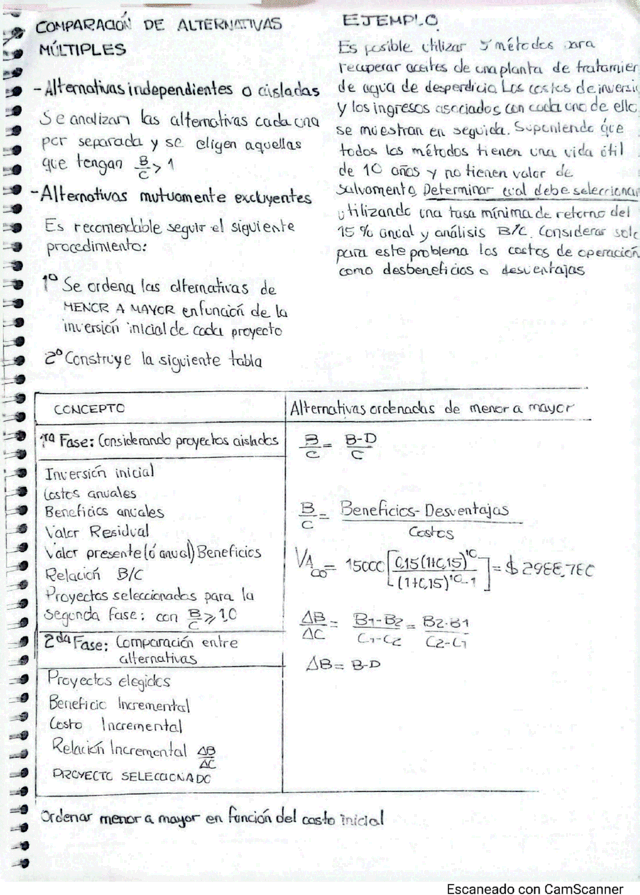 COMPARACIÓN DE ALTERNATIVAS
MÚLTIPLES
- Alternativas independientes o aisladas
Se analizan las alternativas cada una
por separada y se eligen aquellas
que tengan B/C > 1
- Alternativas mutuamente excluyentes
Es recomendable seguir el siguiente
procedimiento:
1º Se ordena las alternativas de
MENOR A MAYOR en función de la
inversión inicial de cada proyecto
2º Construye la siguiente tabla
EJEMPLO
Es posible utilizar 5 métodos para
recuperar aceites de una planta de tratamien
de agua de desperdicio Los costos de inversi
y los ingresos asociados con cada uno de ello
se muestran en seguida. Suponiendo que
todos los métodos tienen una vida útil
de 10 años y no tienen valor de
Salvamento Determinar cual debe selecciona
utilizando una tasa mínima de retorno del
15% anual y análisis B/C. Considerar solo
para este problema los costos de operación
como desbeneficios o desventajas
CONCEPTO
Alternativas ordenadas de menor a mayor
1ra Fase: Considerando proyectos aislados
B/C = B-D/C
Inversión inicial
Costos anuales
Beneficios anuales
Valor Residual
Valor presente (ó anual) Beneficios
Relación B/C
Proyectos seleccionados para la
segunda fase: con B/C ≥ 1,0
B/C = Beneficios - Desventajas / Costos
= 15000 [0,15(1+0,15)^10 / (1+0,15)^10 - 1] = $ 2988,780
ΔB/ΔC = B1-B2/C1-C2 = B2-B1/C2-C1
ΔB = B-D
2da Fase: Comparación entre
alternativas
Proyectos elegidos
Beneficio Incremental
Costo Incremental
Relación Incremental ΔB/ΔC
PROYECTO SELECCIONADO
Ordenar menor a mayor en función del costo inicial
Escaneado con CamScanner